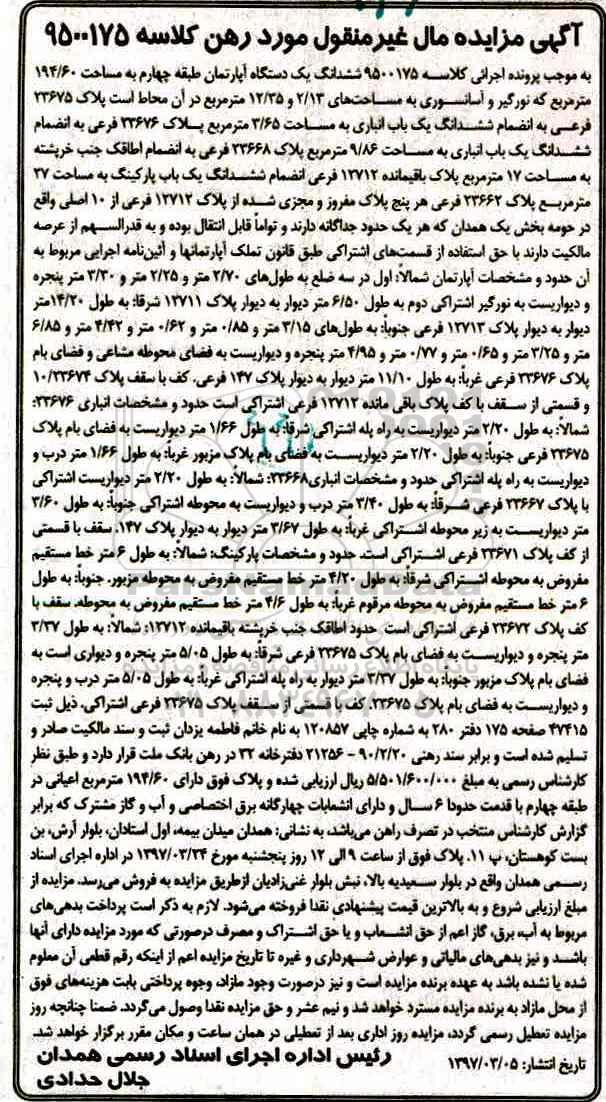 آگهی مزایده مال غیرمنقول مورد رهن کلاسه ۹۵۰۰۱۷۵
به موجب پرونده اجرائی کلاسه ۹۵۰۰۱۷۵ ششدانگ یک دستگاه آپارتمان طبقه چهارم به مساحت ۱۹۴/۶۰
مترمربع که نورگیر و آسانسوری به مساحت‌های ۲/۱۳ و ۱۲/۳۵ مترمربع در آن محاط است پلاک ۲۳۶۷۵
فرعی به انضمام ششدانگ یک باب انباری به مساحت ۳/۶۵ مترمربع پلاک ۲۳۶۷۶ فرعی به انضمام
ششدانگ یک باب انباری به مساحت ۹/۸۶ مترمربع پلاک ۲۳۶۶۸ فرعی به انضمام اطاقک جنب خرپشته
به مساحت ۱۷ مترمربع پلاک باقیمانده ۱۳۷۱۲ فرعی انضمام ششدانگ یک باب پارکینگ به مساحت ۲۷
مترمربع پلاک ۲۳۶۶۲ فرعی هر پنج پلاک مفروز و مجزی شده از پلاک ۱۳۷۱۲ فرعی از ۱۰ اصلی واقع
در حومه بخش یک همدان که هر یک حدود جداگانه دارند و تواماً قابل انتقال بوده و به قدرالسهم از عرصه
مالکیت دارند با حق استفاده از قسمت‌های اشتراکی طبق قانون تملک آپارتمانها و آئین‌نامه اجرایی مربوط به
آن حدود و مشخصات آپارتمان شمالاً: اول در سه ضلع به طول‌های ۲/۷۰ متر و ۲/۲۵ متر و ۳/۳۰ متر پنجره
و دیواریست به نورگیر اشتراکی دوم به طول ۶/۵۰ متر دیوار به دیوار پلاک ۱۳۷۱۱ شرقاً: به طول ۱۴/۲۰متر
دیوار به دیوار پلاک ۱۳۷۱۳ فرعی جنوباً: به طول‌های ۳/۱۵ متر و ۰/۸۵ متر و ۰/۶۲ متر و ۴/۴۲ متر و ۶/۸۵
متر و ۳/۲۵ متر و ۰/۶۵ متر و ۰/۷۷ متر و ۴/۹۵ متر پنجره و دیواریست به فضای محوطه مشاعی و فضای بام
پلاک ۲۳۶۷۶ فرعی غرباً: به طول ۱۱/۱۰ متر دیوار به دیوار پلاک ۱۴۷ فرعی. کف با سقف پلاک ۱۰/۲۳۶۷۴
و قسمتی از سقف با کف پلاک باقی مانده ۱۳۷۱۲ فرعی اشتراکی است حدود و مشخصات انباری ۲۳۶۷۶:
شمالاً: به طول ۲/۲۰ متر دیواریست به راه پله اشتراکی شرقاً: به طول ۱/۶۶ متر دیواریست به فضای بام پلاک
۲۳۶۷۵ فرعی جنوباً: به طول ۲/۲۰ متر دیواریست به فضای بام پلاک مزبور غرباً: به طول ۱/۶۶ متر درب و
دیواریست به راه پله اشتراکی حدود و مشخصات انباری۲۳۶۶۸: شمالاً: به طول ۲/۲۰ متر دیواریست اشتراکی
با پلاک ۲۳۶۶۷ فرعی شرقاً: به طول ۳/۴۰ متر درب و دیواریست به محوطه اشتراکی جنوباً: به طول ۳/۶۰
متر دیواریست به زیر محوطه اشتراکی غرباً: به طول ۳/۶۷ متر دیوار به دیوار پلاک ۱۴۷. سقف با قسمتی
از کف پلاک ۲۳۶۷۱ فرعی اشتراکی است. حدود و مشخصات پارکینگ: شمالاً: به طول ۶ متر خط مستقیم
مفروض به محوطه اشتراکی شرقاً: به طول ۴/۲۰ متر خط مستقیم مفروض به محوطه مزبور. جنوباً: به طول
۶ متر خط مستقیم مفروض به محوطه مرقوم غرباً: به طول ۴/۶ متر خط مستقیم مفروض به محوطه. سقف با
کف پلاک ۲۳۶۷۲ فرعی اشتراکی است. حدود اطاقک جنب خرپشته باقیمانده ۱۳۷۱۲: شمالاً: به طول ۳/۳۷
متر پنجره و دیواریست به فضای بام پلاک ۲۳۶۷۵ فرعی شرقاً: به طول ۵/۰۵ متر پنجره و دیواری است به
فضای بام پلاک مزبور جنوباً: به طول ۳/۳۷ متر دیوار به راه پله اشتراکی غرباً: به طول ۵/۰۵ متر درب و پنجره
و دیواریست به فضای بام پلاک ۲۳۶۷۵. کف با قسمتی از سقف پلاک ۲۳۶۷۵ فرعی اشتراکی. ذیل ثبت
۴۷۴۱۵ صفحه ۱۷۵ دفتر ۲۸۰ به شماره چاپی ۱۲۰۸۵۷ به نام خانم فاطمه یزدان ثبت و سند مالکیت صادر و
تسلیم شده است و برابر سند رهنی ۹۰/۲/۲۰ – ۲۱۲۵۶ دفترخانه ۳۲ در رهن بانک ملت قرار دارد و طبق نظر
کارشناس رسمی به مبلغ ۵/۵۰۱/۶۰۰/۰۰۰ ریال ارزیابی شده و پلاک فوق دارای ۱۹۴/۶۰ مترمربع اعیانی در
طبقه چهارم با قدمت حدودا ۶ سال و دارای انشعابات چهارگانه برق اختصاصی و آب و گاز مشترک که برابر
گزارش کارشناس منتخب در تصرف راهن می‌باشد، به نشانی: همدان میدان بیمه، اول استادان، بلوار آرش، بن
بست کوهستان، پ ۱۱. پلاک فوق از ساعت ۹ الی ۱۲ روز پنجشنبه مورخ ۱۳۹۷/۰۳/۲۴ در اداره اجرای اسناد
رسمی همدان واقع در بلوار سعیدیه بالا، نبش بلوار غنی‌زادیان ازطریق مزایده به فروش می‌رسد. مزایده از
مبلغ ارزیابی شروع و به بالاترین قیمت پیشنهادی نقدا فروخته می‌شود. لازم به ذکر است پرداخت بدهی‌های
مربوط به آب، برق، گاز اعم از حق انشعاب و یا حق اشتراک و مصرف درصورتی که مورد مزایده دارای آنها
باشد و نیز بدهی‌های مالیاتی و عوارض شهرداری و غیره تا تاریخ مزایده اعم از اینکه رقم قطعی آن معلوم
شده یا نشده باشد به عهده برنده مزایده است و نیز درصورت وجود مازاد، وجوه پرداختی بابت هزینه‌های فوق
از محل مازاد به برنده مزایده مسترد خواهد شد و نیم عشر و حق مزایده نقدا وصول می‌گردد. ضمنا چنانچه روز
مزایده تعطیل رسمی گردد، مزایده روز اداری بعد از تعطیلی در همان ساعت و مکان مقرر برگزار خواهد شد.
تاریخ انتشار: ۱۳۹۷/۰۳/۰۵
رئیس اداره اجرای اسناد رسمی همدان
جلال حدادی